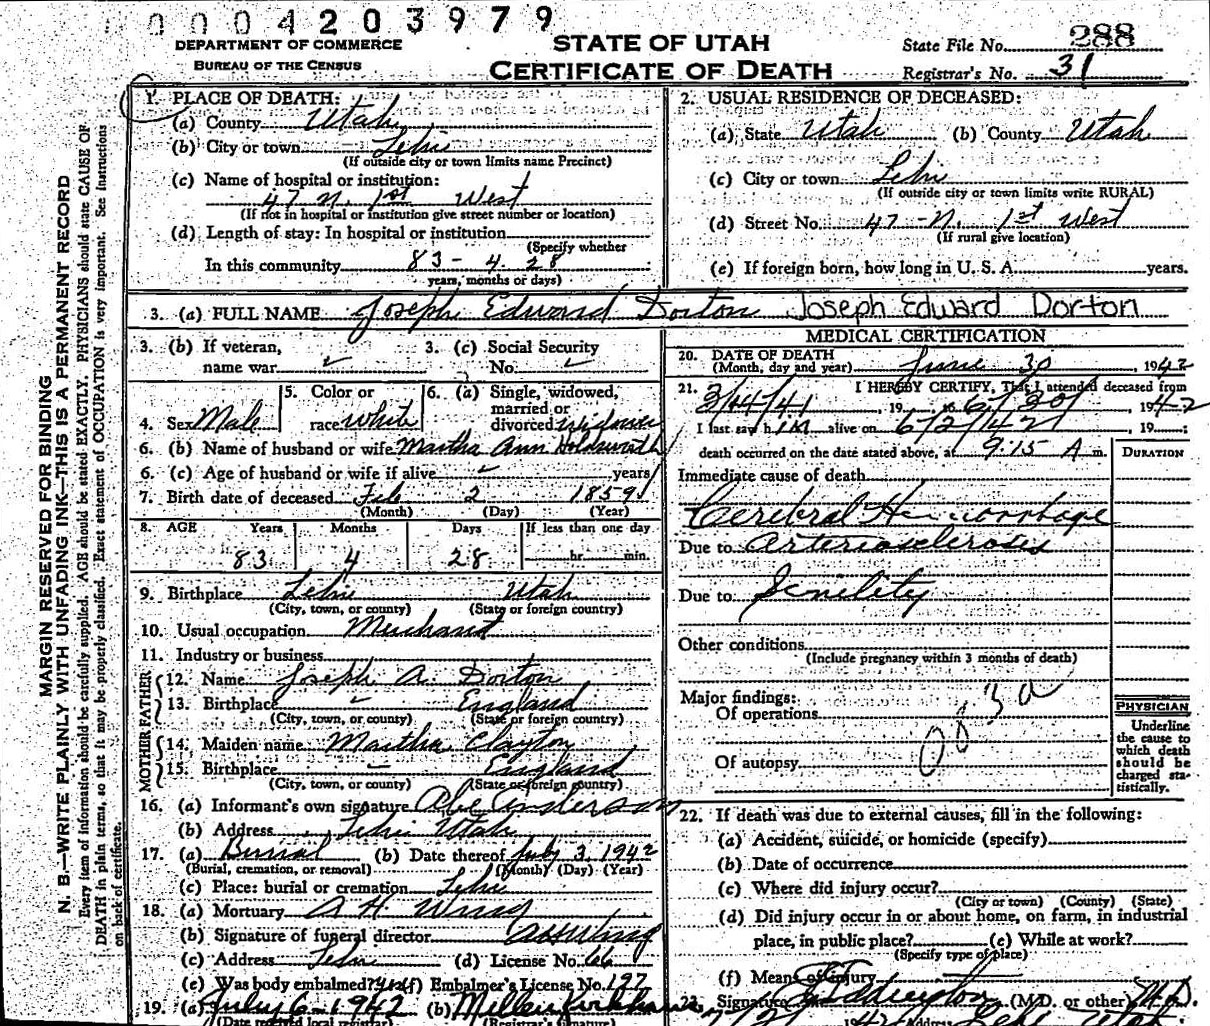 0004203979
DEPARTMENT OF COMMERCE
BUREAU OF THE CENSUS
STATE OF UTAH
CERTIFICATE OF DEATH
State File No. 288
Registrar's No. 31
MARGIN RESERVED FOR BINDING
N. B.—WRITE PLAINLY WITH UNFADING INK—THIS IS A PERMANENT RECORD
Every item of information should be carefully supplied. AGE should be stated EXACTLY. PHYSICIANS should state CAUSE OF
DEATH in plain terms, so that it may be properly classified. Exact statement of OCCUPATION is very important. See Instructions
on back of certificate.
1. PLACE OF DEATH:
(a) County Utah
(b) City or town Lehi
(If outside city or town limits name Precinct)
(c) Name of hospital or institution:
47 N. 1st West
(If not in hospital or institution give street number or location)
(d) Length of stay: In hospital or institution
(Specify whether
In this community 83 - 4. 28
years, months or days)
2. USUAL RESIDENCE OF DECEASED:
(a) State Utah (b) County Utah
(c) City or town Lehi
(If outside city or town limits write RURAL)
(d) Street No. 47 - N. 1st West
(If rural give location)
(e) If foreign born, how long in U. S. A. years.
3. (a) FULL NAME Joseph Edward Dorton Joseph Edward Dorton
3. (b) If veteran, name war
3. (c) Social Security No.
4. Sex Male
5. Color or race white
6. (a) Single, widowed, married or divorced widower
6. (b) Name of husband or wife Martha Ann Holdsworth
6. (c) Age of husband or wife if alive years
7. Birth date of deceased Feb 2 1859
(Month) (Day) (Year)
8. AGE Years Months Days If less than one day
83 4 28 hr. min.
9. Birthplace Lehi Utah
(City, town, or county) (State or foreign country)
10. Usual occupation Merchant
11. Industry or business
FATHER
12. Name Joseph A. Dorton
13. Birthplace England
(City, town, or county) (State or foreign country)
MOTHER
14. Maiden name Martha Clayton
15. Birthplace England
(City, town, or county) (State or foreign country)
16. (a) Informant's own signature Abe Anderson
(b) Address Lehi Utah
17. (a) Burial (b) Date thereof July 3, 1942
(Burial, cremation, or removal) (Month) (Day) (Year)
(c) Place: burial or cremation Lehi
18. (a) Mortuary A. H. Wing
(b) Signature of funeral director
(c) Address Lehi (d) License No. 66
(e) Was body embalmed? yes (f) Embalmer's License No. 197
19. (a) July 6 - 1942 (b)
(Date received local registrar) (Registrar's signature)
MEDICAL CERTIFICATION
20. DATE OF DEATH
(Month, day and year) June 30, 1942
21. I HEREBY CERTIFY, That I attended deceased from
3/44/41, 19 to 6/30/, 1942
I last saw him alive on 6/2/42, 19 ;
death occurred on the date stated above, at 9:15 A m.
DURATION
Immediate cause of death
Cerebral Hemorrhage
Due to Arteriosclerosis
Due to Senility
Other conditions
(Include pregnancy within 3 months of death)
Major findings:
Of operations
Of autopsy
083a
PHYSICIAN
Underline
the cause to
which death
should be
charged sta-
tistically.
22. If death was due to external causes, fill in the following:
(a) Accident, suicide, or homicide (specify)
(b) Date of occurrence
(c) Where did injury occur?
(City or town) (County) (State)
(d) Did injury occur in or about home, on farm, in industrial
place, in public place? (e) While at work?
(Specify type of place)
(f) Means of injury
23. Signature (M.D. or other) M.D.
Address Lehi Utah